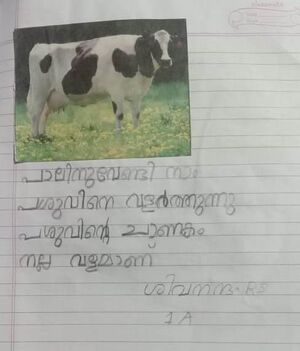 പാലിനുവേണ്ടി നാം
പശുവിനെ വളർത്തുന്നു
പശുവിന്റെ ചാണകം
നല്ല വളമാണ്
ശിവനന്ദ. R S
1 A